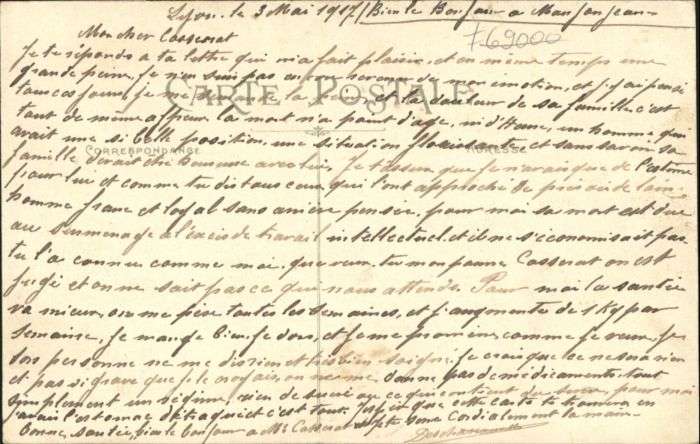 Lyon. le 3 Mai 1917 / Bien le Bonjour a Mon Jean
769000
Mon cher Casserat
Je te réponds a ta lettre qui m'a fait plaisir, et en même temps une
grande peine, je n'en suis pas encore revenu de mon émotion, et j'y ai pensé
tous ces jours, je me la peine, et la douleur de sa famille, c'est
CARTE POSTALE
tout de même affreux la mort n'a point d'age, ni d'Heure, un homme qui
avait une si belle position, une situation florissante, et sans savoir sa
CORRESPONDANCE
ADRESSE
famille devait être heureuse avec lui. Je t'assure que je n'avais que de l'estime
pour lui et comme tu dis tous ceux qui l'ont approché de près ont de
homme franc et loyal sans arrière pensée, pour moi sa mort est due
au surmenage a l'excès de travail intellectuel. et il ne s'économisait pas
tu l'a connu comme moi, que veux-tu mon pauvre Casserat on est
jugé et on ne sait pas ce qui nous attends. Pour moi la santée
va mieux, on me pèse toutes les semaines, et j'augmente de 1 Kg par
semaine, je mange bien, je dors, et je me promène, comme je veux, je
dors personne ne me dis rien et très bien soigné. Je crois que ce ne sera rien
et pas si grave que je le croyais, on ne me donne pas de médicaments. tout
simplement un régime, rien de sucré ou ce qui contient du sucre, pour moi
j'avais l'estomac détraqué et c'est tout. J'espère que cette carte te trouvera en
bonne santée, bien le bonjour a Me Casserat et je te serre Cordialement la main.